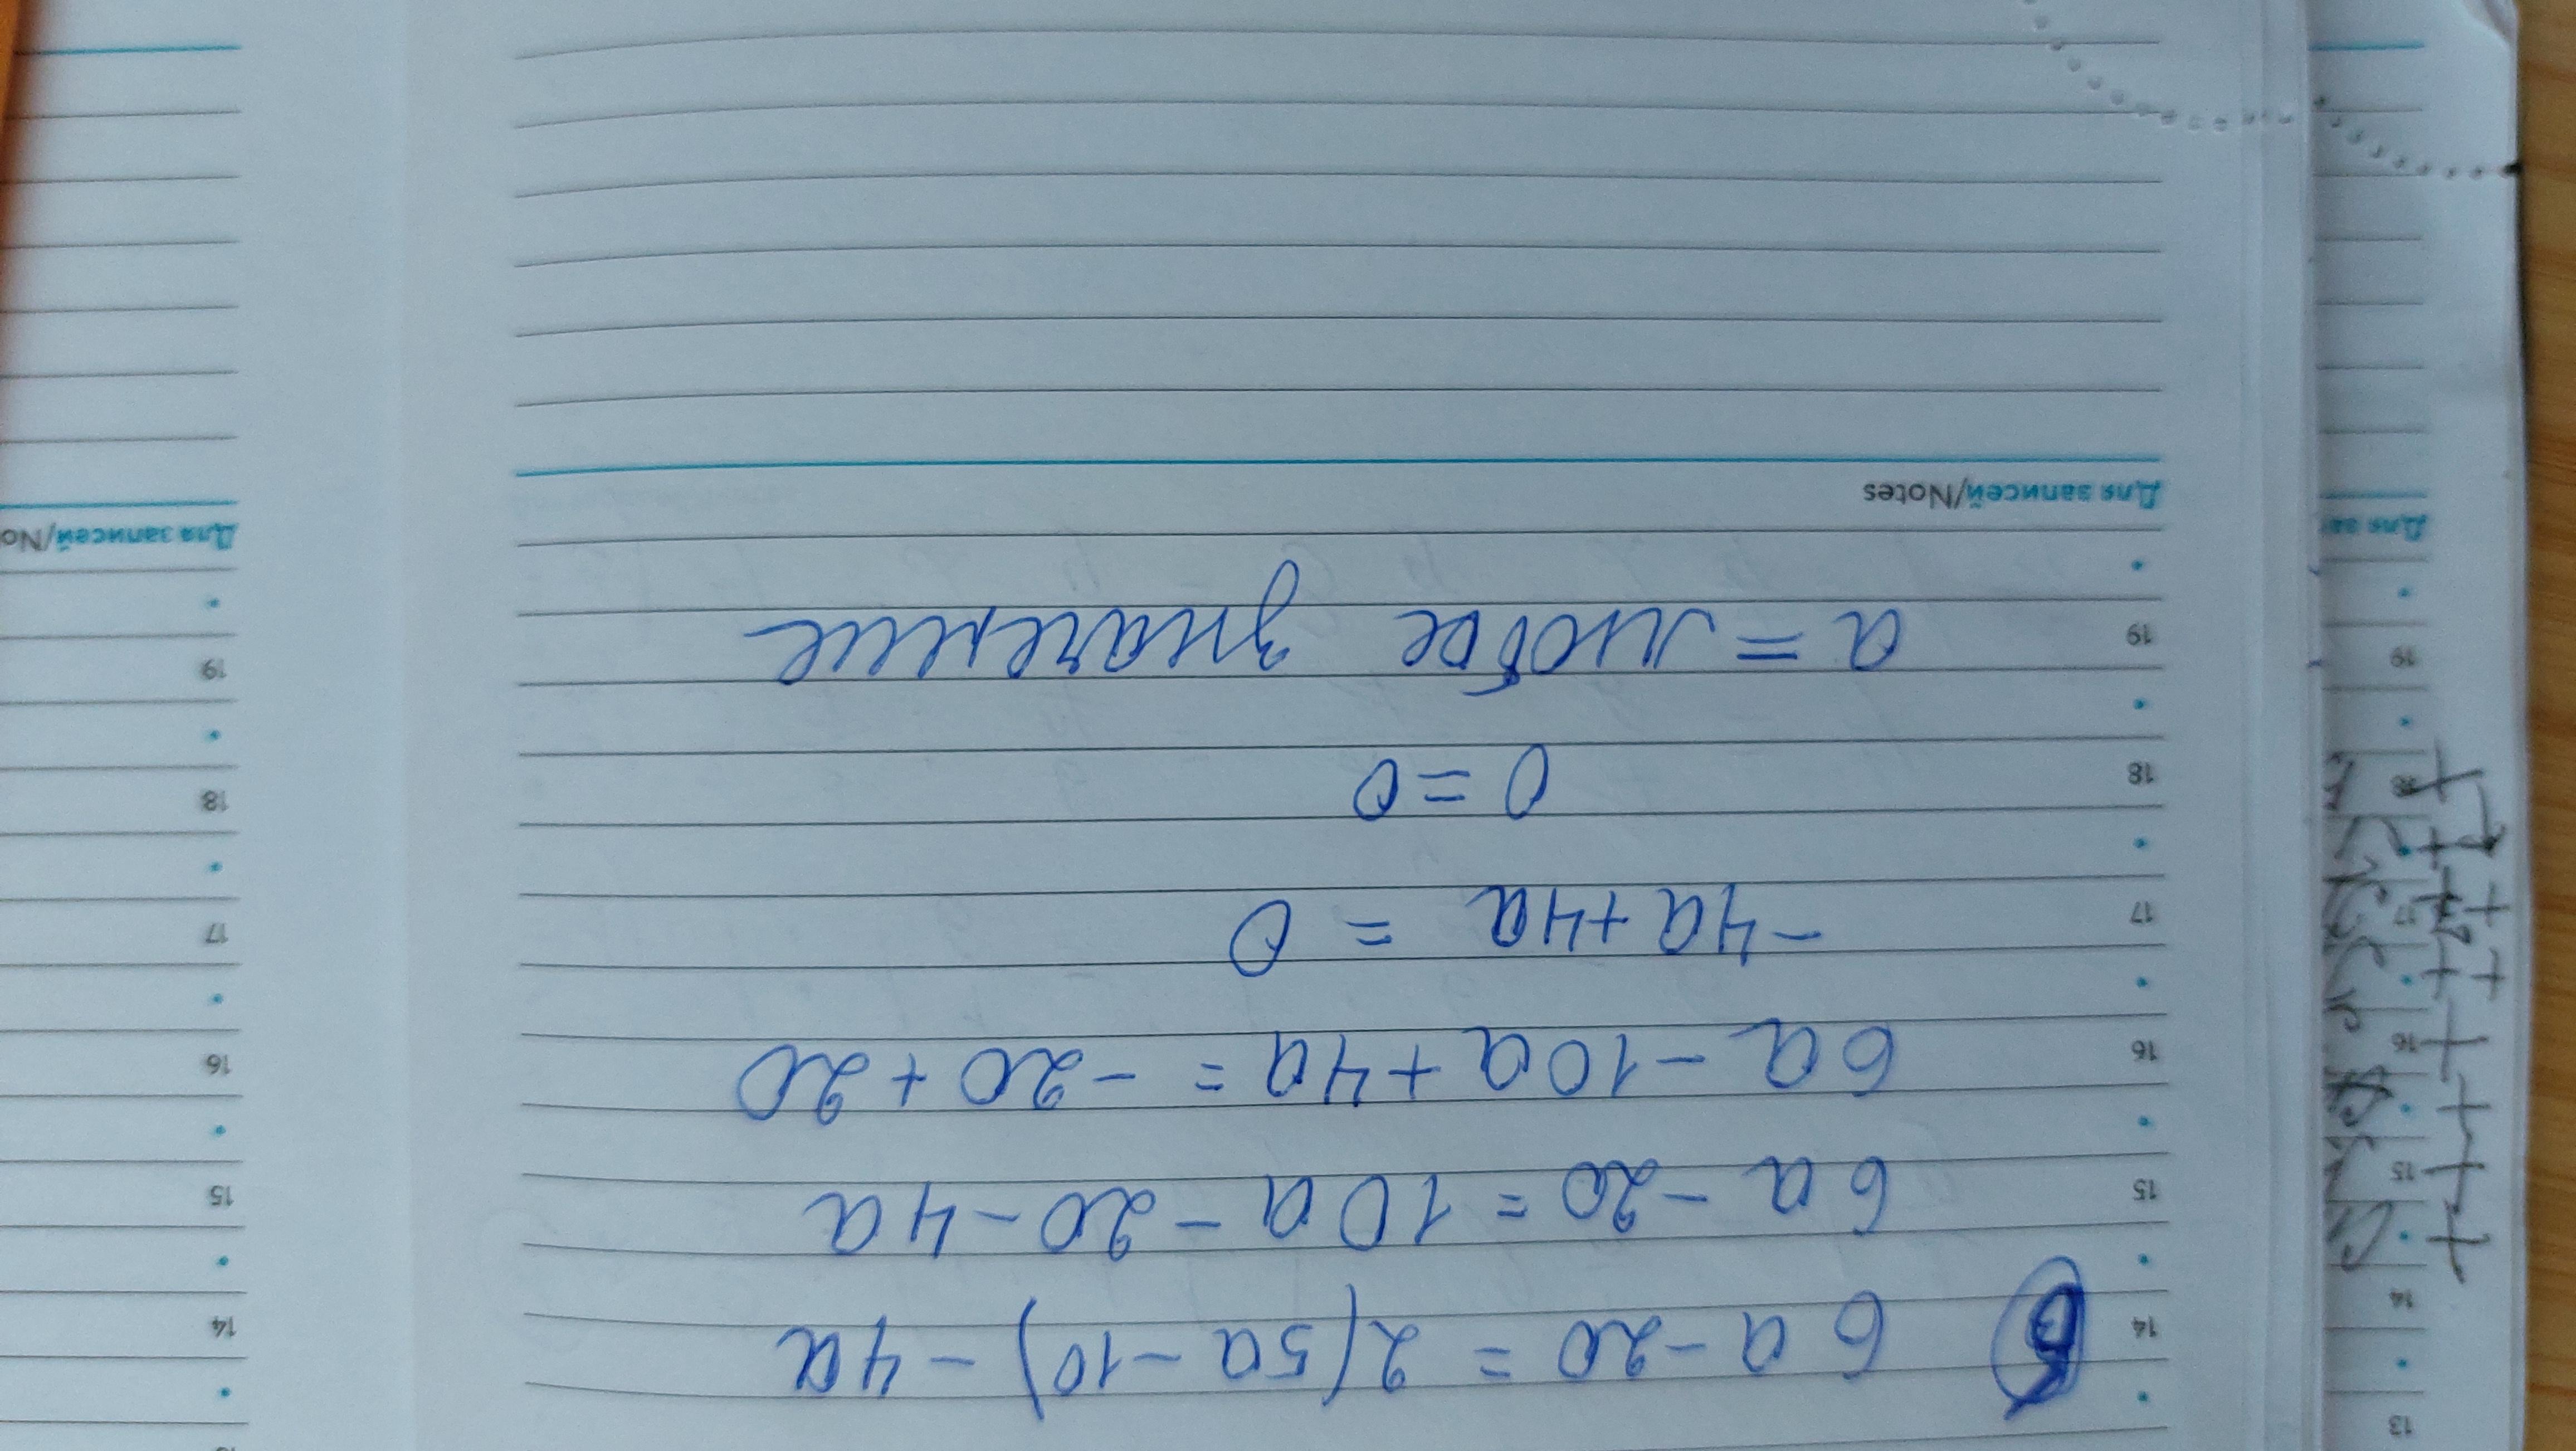 13
б 14 6a - 20 = 2(5a - 10) - 4a
15 6a - 20 = 10a - 20 - 4a
16 6a - 10a + 4a = -20 + 20
17 -4a + 4a = 0
18 0 = 0
19 a = любое значение
Для записей/Notes
14
15
16
17
18
19
Для записей/No
14
15
16
17
19
Для за